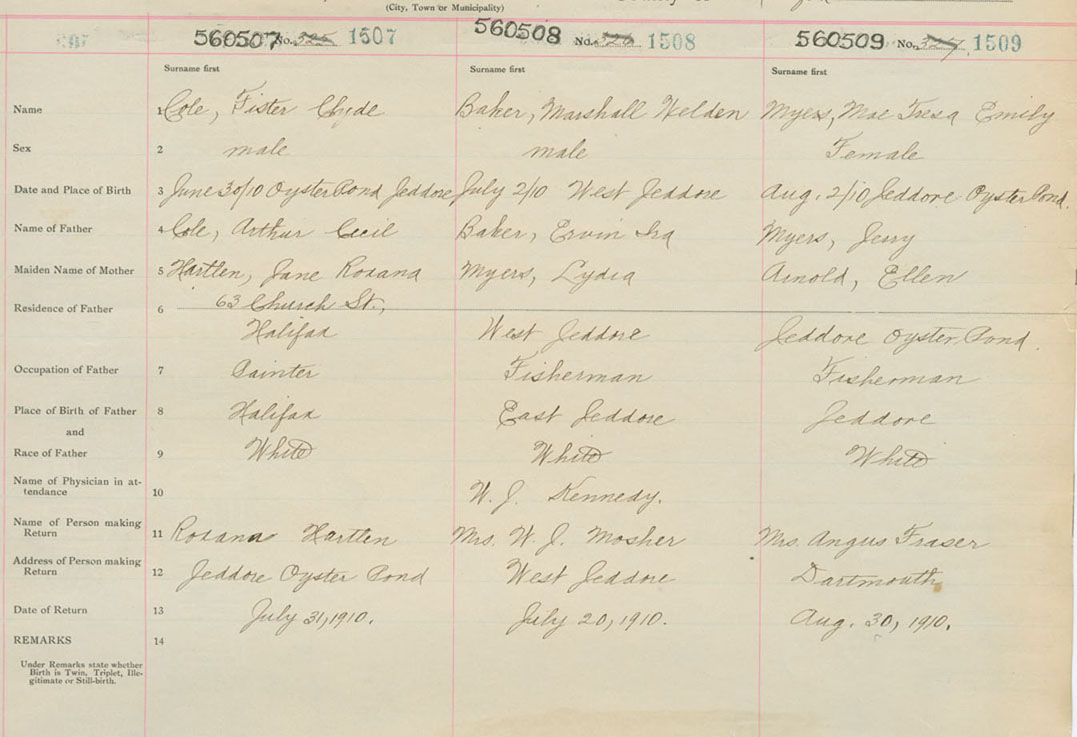 (City, Town or Municipality)
560507 No. 325 1507 560508 No. 326 1508 560509 No. 327 1509
Surname first Surname first Surname first
Name 1 Cole, Fister Clyde Baker, Marshall Helden Myers, Mae Tresa Emily
Sex 2 male male Female
Date and Place of Birth 3 June 30/10 Oyster Pond Jeddore July 2/10 West Jeddore Aug. 2/10 Jeddore Oyster Pond.
Name of Father 4 Cole, Arthur Cecil Baker, Ervin Ira Myers, Jerry
Maiden Name of Mother 5 Hartlen, Jane Roxana Myers, Lydia Arnold, Ellen
63 Church St.,
Residence of Father 6
Halifax West Jeddore Jeddore Oyster Pond.
Occupation of Father 7 Painter Fisherman Fisherman
Place of Birth of Father 8 Halifax East Jeddore Jeddore
and
Race of Father 9 White White White
Name of Physician in at-
tendance 10 W. J. Kennedy.
Name of Person making
Return 11 Roxana Hartlen Mrs. W. J. Mosher Mrs. Angus Fraser
Address of Person making
Return 12 Jeddore Oyster Pond West Jeddore Dartmouth
Date of Return 13 July 31, 1910. July 20, 1910. Aug. 30, 1910.
REMARKS 14
Under Remarks state whether
Birth is Twin, Triplet, Ille-
gitimate or Still-birth.